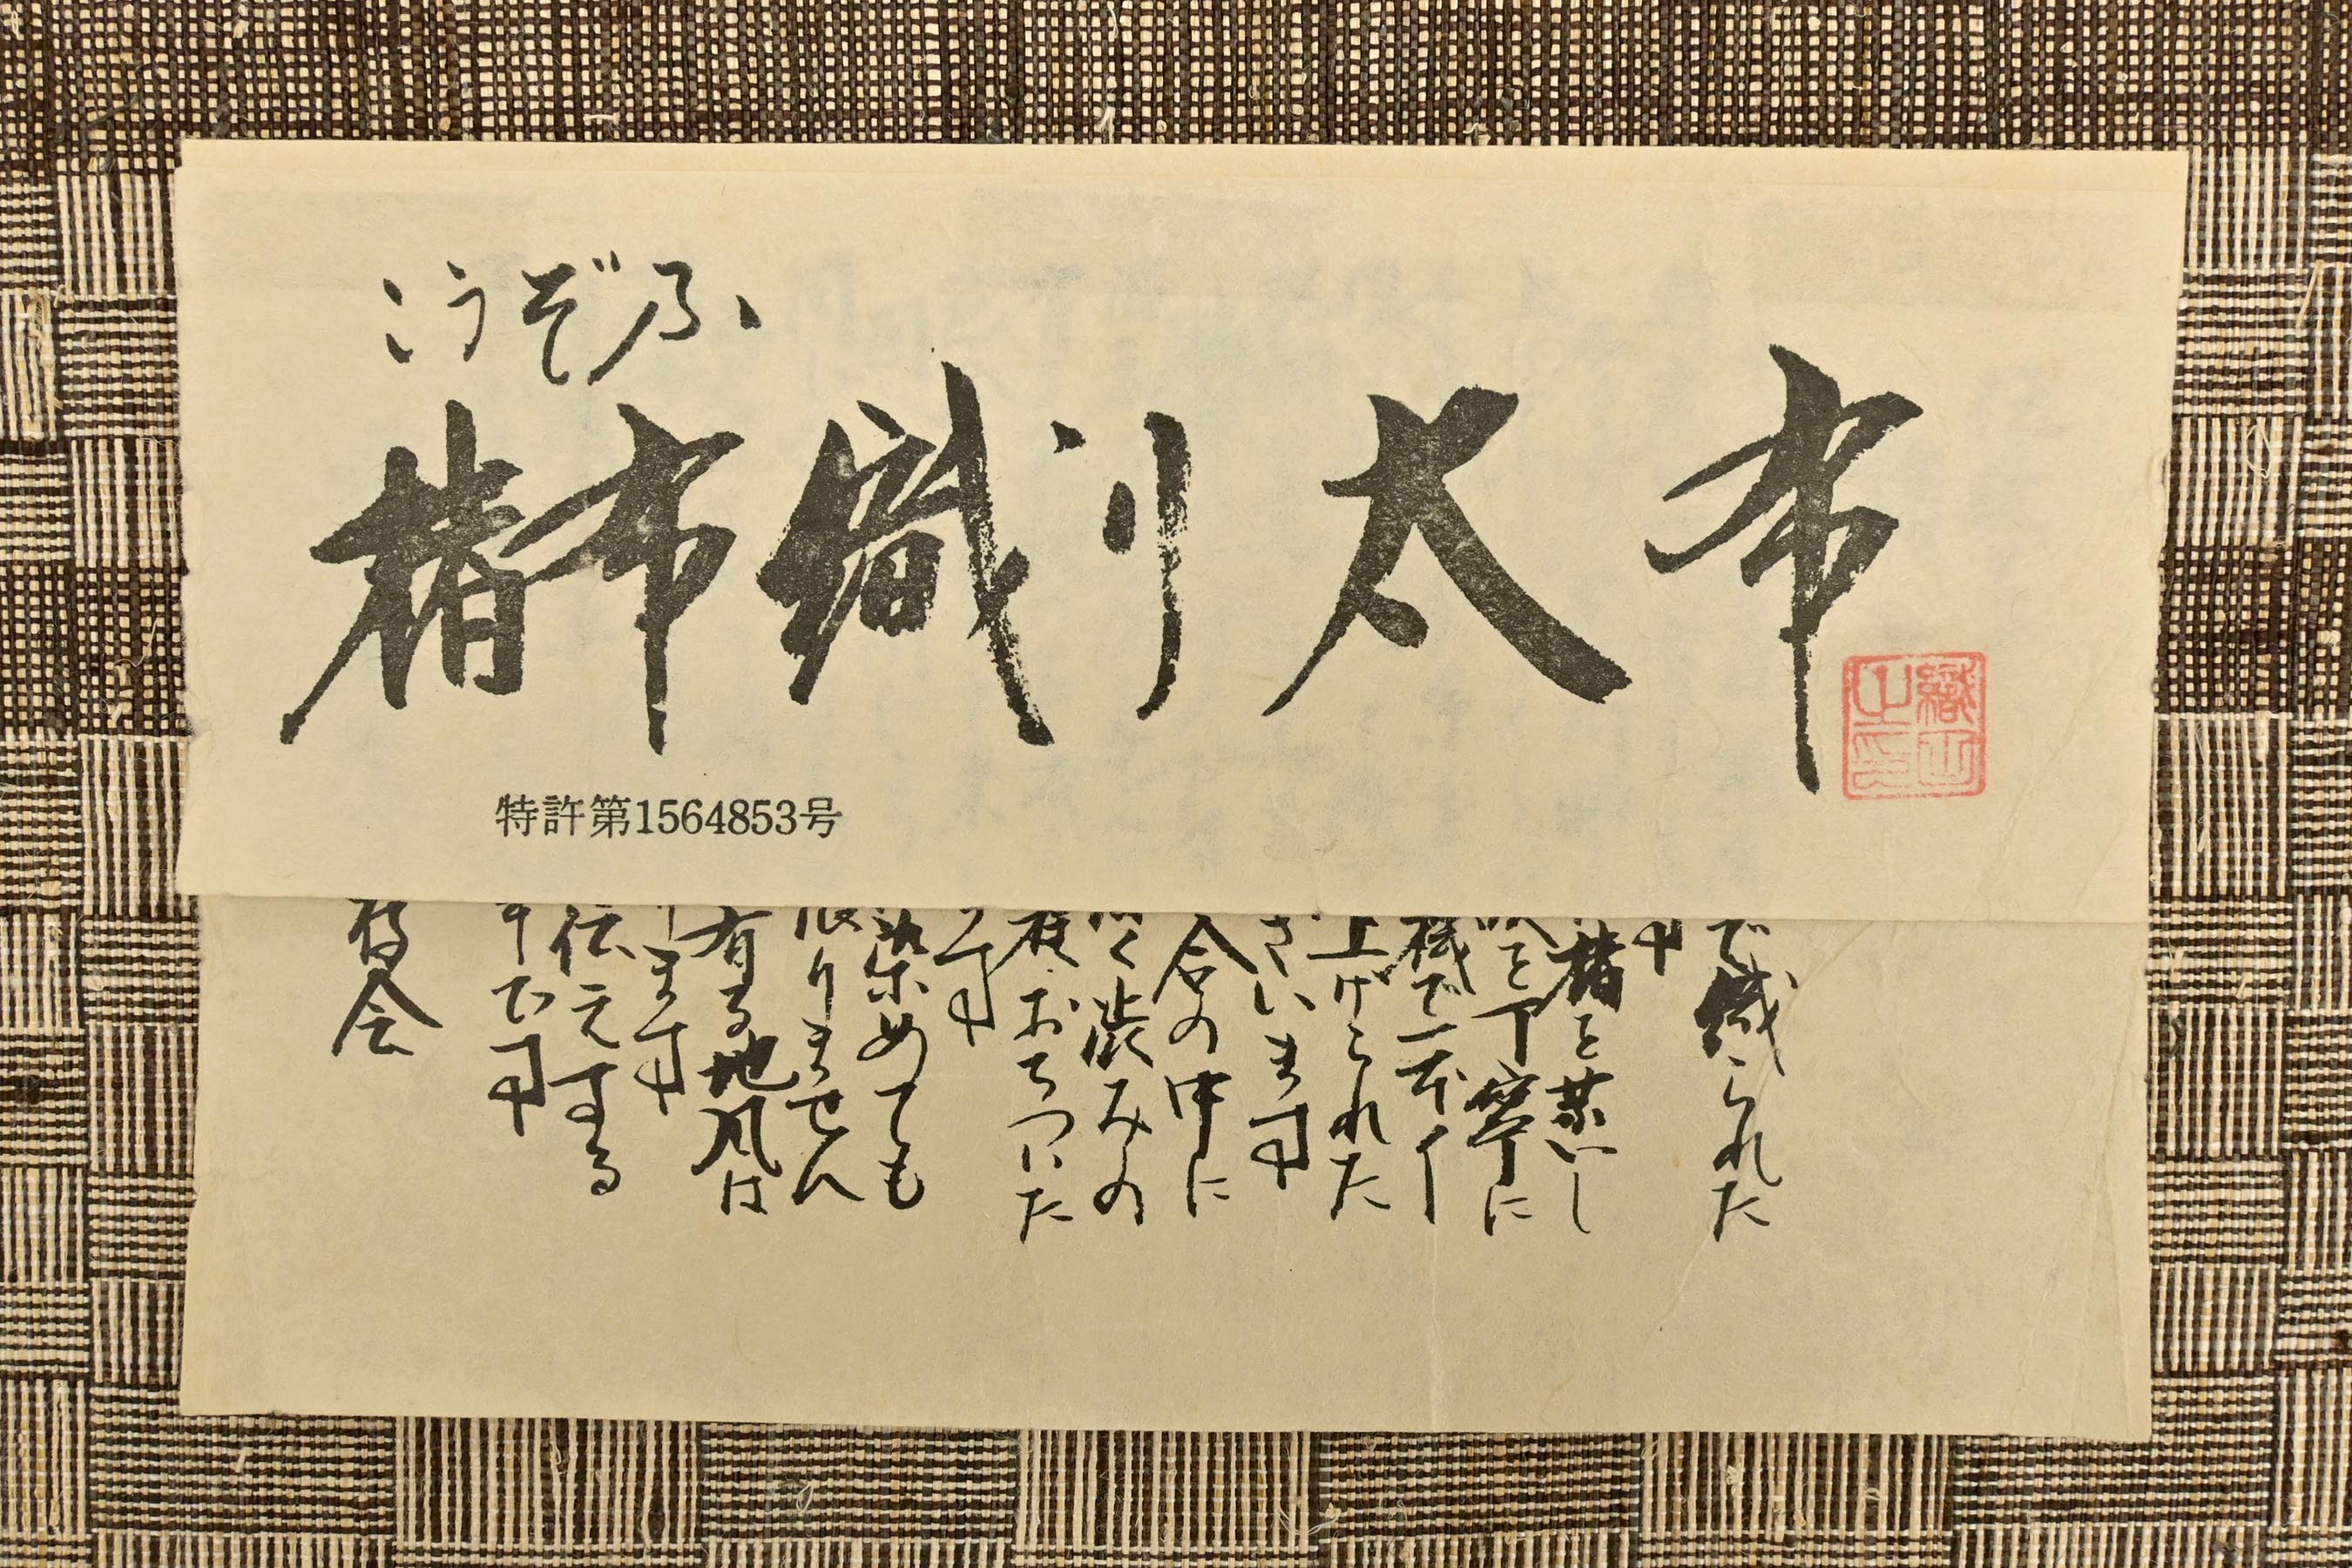 こうぞふ
楮布織り太布
特許第1564853号
で織られた
す
楮を蒸し
を丁寧に
機で一本一
上げられた
ざいます
合の中に
く渋みの
程おちついた
ます
染めても
限りません
有る地風は
ます
伝えする
す
会